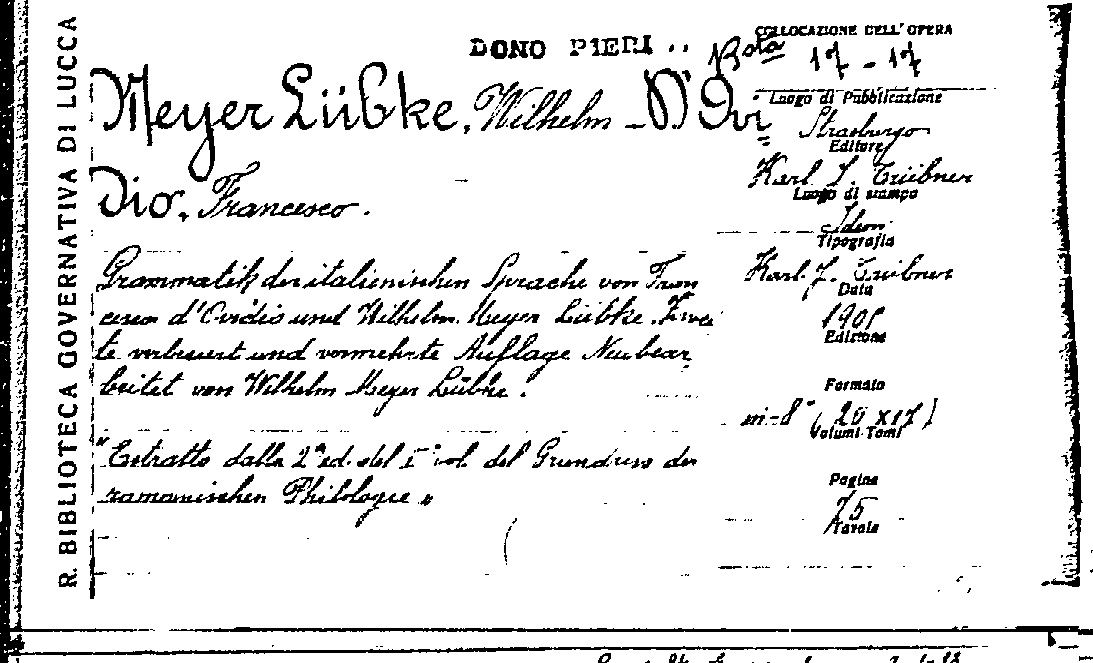 R. BIBLIOTECA GOVERNATIVA DI LUCCA
DONO PIERI
COLLOCAZIONE DELL'OPERA
Bta 17-17
Meyer Lübke, Wilhelm - D'Ovi
dio, Francesco.
Grammatik der italienischen Sprache von Fran
cesco d'Ovidio und Wilhelm Meyer Lübke. Zwei
te verbessert und vermehrte Auflage Neubear
beitet von Wilhelm Meyer Lübke.
"Estratto dalla 2ª ed. del I° vol. del Grundriss der
romanischen Philologie"
Luogo di Pubblicazione
Strasburgo
Editore
Karl J. Trübner
Luogo di stampa
Idem
Tipografia
Karl J. Trübner
Data
Edizione
Formato
in-8° (26x17)
Volumi-Tomi
Pagine
75
Tavole